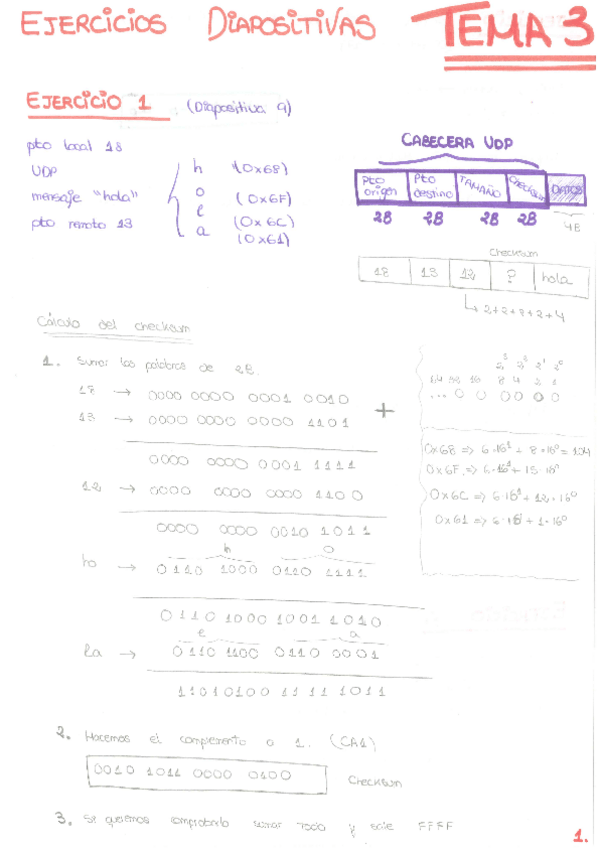 EJERCICIOS DIAPOSITIVAS TEMA 3
EJERCICIO 1 (Diapositiva 9)
pto local 18
UDP
mensaje "hola"
pto remoto 13
h (0x68)
o (0x6F)
l (0x6C)
a (0x61)
CABECERA UDP
Pto origen Pto destino TAMAÑO CHECKSUM DATOS
2B 2B 2B 2B 4B
Checksum
18 13 12 ? hola
2+2+2+2+4
Cálculo del checksum
1. Sumar las palabras de 2B.
18 → 0000 0000 0001 0010
13 → 0000 0000 0000 1101 +
0000 0000 0001 1111
12 → 0000 0000 0000 1100
0000 0000 0010 1011
h o
ho → 0110 1000 0110 1111
0110 1000 1001 1010
l a
la → 0110 1100 0110 0001
11010100 1111 1011
2³ 2² 2¹ 2⁰
64 32 16 8 4 2 1
... 0 0 0 0 0 0
0x68 => 6·16¹ + 8·16⁰ = 104
0x6F => 6·16¹ + 15·16⁰
0x6C => 6·16¹ + 12·16⁰
0x61 => 6·16¹ + 1·16⁰
2. Hacemos el complemento a 1. (CA1)
0010 1011 0000 0100 Checksum
3. Si queremos comprobarlo sumar todo y sale FFFF
1.